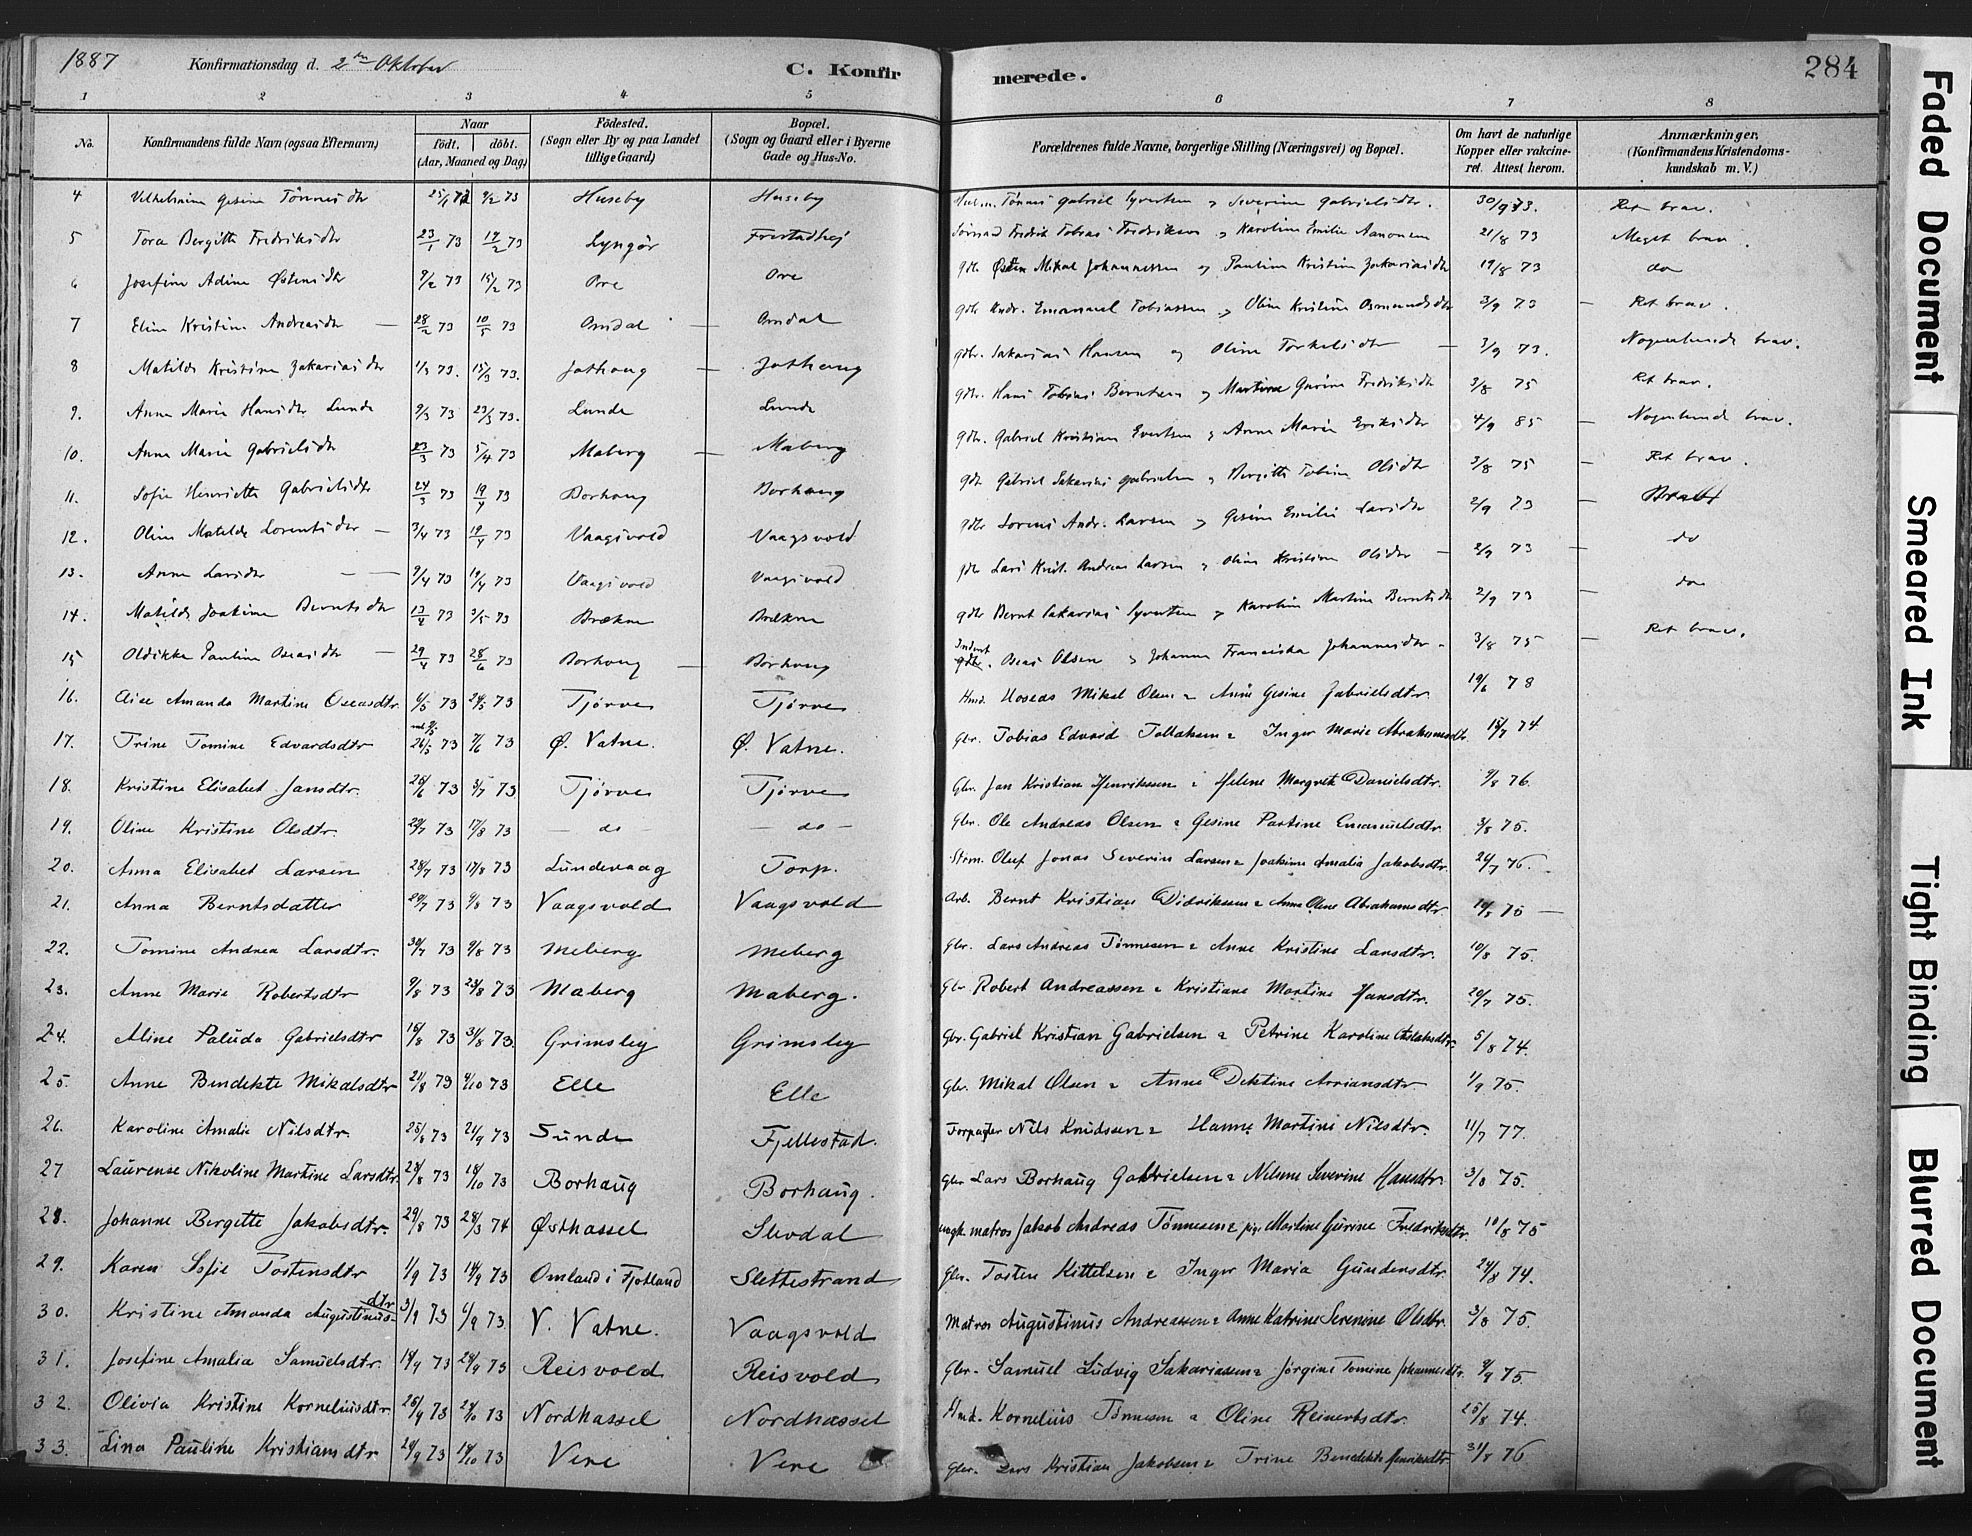 1887 Konfirmationsdag d. 2den Oktober C. Konfirmerede. 284
1 2 3 4 5 6 7 8
No. Konfirmandens fulde Navn (ogsaa Efternavn) Naar födt. döbt. (Aar, Maaned og Dag) Födested. (Sogn eller By og paa Landet tillige Gaard) Bopæl. (Sogn og Gaard eller i Byerne Gade og Hus-No. Forældrenes fulde Navne, borgerlige Stilling (Næringsvei) og Bopæl. Om havt de naturlige Kopper eller vakcineret. Attest herom. Anmærkninger. (Konfirmandens Kristendomskundskab m. V.)
4 Vilhelmine Gesine Tönnesdtr 9/2 73 Huseby Huseby Tönnes Gabriel Syvertsen og Severine Gabrielsdtr. 30/9 73. Ret brav.
5 Tora Bergitte Fredriksdtr 23/1 73 19/2 73 Lyngör Fredrik Tobias Fredriksen og Karoline Emilie Aanonsen 21/8 73 Meget brav.
6 Josefine Adine Östensdtr 9/2 73 15/2 73 Ore Ore gdbr Östen Mikal Johannessen og Pauline Kristine Zakariasdtr 19/8 73 do
7 Eline Kristine Andreasdtr — 28/2 73 10/5 73 Omdal — Omdal gdbr Andr. Emanuel Tobiassen og Oline Kristine Osmundsdtr 3/9 73 — Ret brav.
8 Matilde Kristine Zakariasdtr 1/3 73. 15/3 73. Jothaug — Jothaug gdbr. Sakarias Hansen og Oline Torkelsdtr — 3/9 73. Nogenlunde brav.
9. Anne Marie Hansdtr Lunde 9/3 73 23/3 73. Lunde Lunde gdbr. Hans Tobias Berntsen og Martine Gurine Fredriksdtr 3/8 75 Ret brav.
10. Anne Marie Gabrielsdtr 23/3 73 5/4 73 Maberg — Maberg gdbr. Gabriel Kristian Evertsen og Anne Marie Eriksdtr 4/9 85 — Nogenlunde brav.
11. Sofie Henriette Gabrielsdtr 24/3 73 19/4 73 Borhaug Borhaug gdbr Gabriel Sakarias Gabrielsen og Bergitte Tobine Olsdtr 3/8 75 — Ret brav.
12. Oline Matilde Lorentsdtr — 3/4 73 19/4 73 Vaagsvold Vaagsvold gdbr Lorens Andr. Larsen og Gesine Emilie Larsdtr 2/9 73 — Brav
13. Anne Larsdtr — — 9/4 73 19/4 73 Vaagsvold Vaagsvold gdbr Lars Krist. Andreas Larsen og Oline Kristine Olsdtr — 2/9 73 — do
14. Matilde Joakime Berntsdtr 13/4 73 3/5 73 Brækne Brækne gdbr Bernt Sakarias Syvertsen og Karoline Martine Berntsdtr 2/9 73 — do
15 Oldikke Pauline Oseasdtr — 29/4 73 28/6 73 Borhaug — Borhaug gdbr. Oseas Olsen og Johanne Franciska Johannesdtr — 3/8 75 — Ret brav.
16. Elise Amanda Martine Oseasdtr. 6/5 73 24/5 73 Tjörve Tjörve Hmd. Hoseas Mikal Olsen & Anne Gesine Gabrielsdtr. 19/6 78
17. Trine Tomine Edvardsdtr 26/5 73 7/6 73 Ø. Vatne. Ø. Vatne. Gbr. Tobias Edvard Tollaksen & Inger Marie Abrahamsdtr. 18/7 74
18. Kristine Elisabet Jansdtr. 26/6 73 3/7 73 Tjörve Tjörve Gbr. Jan Kristian Henriksen & Helene Margrete Danielsdtr. 9/8 76.
19. Oline Kristine Olsdtr. 22/7 73 17/8 73 — do — — do — Gbr. Ole Andreas Olsen & Gesine Partine Emanuelsdtr. 3/8 75.
20. Anna Elisabet Larsen 28/7 73 17/8 73 Lundevaag Torp. Strm. Oluf Jonas Severin Larsen & Joakime Amalia Jakobsdtr. 24/7 76.
21. Anna Berntsdatter 29/7 73 9/8 73 Vaagsvold Vaagsvold Arb. Bernt Kristian Didriksen & Anne Oline Abrahamsdtr. 75 —
22. Tomine Andrea Larsdtr. 30/7 73 9/8 73 Meberg Meberg Gbr. Lars Andreas Tönnesen & Anne Kristine Larsdtr. 10/8 75.
23. Anne Marie Robertsdtr 9/8 73 23/8 73 Maberg Maberg. Gbr Robert Andreassen & Kristiane Martine Hansdtr. 20/7 75.
24. Aline Paluda Gabrielsdtr 16/8 73 31/8 73. Grimsby Grimsby Gbr. Gabriel Kristian Gabrielsen & Petrine Karoline Aslaksdtr. 5/8 74.
25. Anne Bendekte Mikalsdtr 21/8 73 4/10 73 Elle Elle Gbr. Mikal Olsen & Anne Dektine Arriansdtr 1/9 75.
26. Karoline Amalie Nilsdtr. 25/8 73 21/9 73 Sunde Fjellestad. Forpagter Nils Knudssen & Hanne Martine Nilsdtr. 11/7 77.
27 Laurense Nikoline Martine Larsdtr. 28/8 73 18/10 73 Borhaug Borhaug. Gbr Lars Borhaug Gabrielsen & Nelsine Severine Hansdtr. 3/8 75.
28. Johanne Bergette Jakobsdtr. 29/8 73 28/3 74 Østhassel Slevdal ungk. matros Jakob Andreas Tönnesen & pige Martine Gurine Fredriksdtr. 10/8 75
29. Karen Sofie Tostensdtr 1/9 73 14/9 73 Omland i Fjotland Slettestrand Gbr. Tosten Kittelsen & Inger Maria Gundersdtr. 24/8 74.
30. Kristine Amanda Augustinusdtr 3/9 73 6/9 73. V. Vatne. Vaagsvold Matros Augustinus Andreassen & Anne Katrine Serenine Olsdtr. 3/8 75.
31. Josefine Amalia Samuelsdtr. 14/9 73 28/9 73 Reisvold Reisvold Gbr. Samuel Ludvig Sakariassen & Jörgine Tomine Johannesdtr. 9/9 75.
32. Olivia Kristine Korneliusdtr. 26/9 73 24/10 73 Nordhassel Nordhassel Kornelius Tönnesen & Oline Reinertsdtr. 25/8 74.
33. Lina Pauline Kristiansdtr 24/9 73 19/10 73 Vere Vere Gbr. Lars Kristian Jakobsen & Trine Bendekte Henriksdtr. 31/8 76
Faded Document
Smeared Ink
Tight Binding
Blurred Document